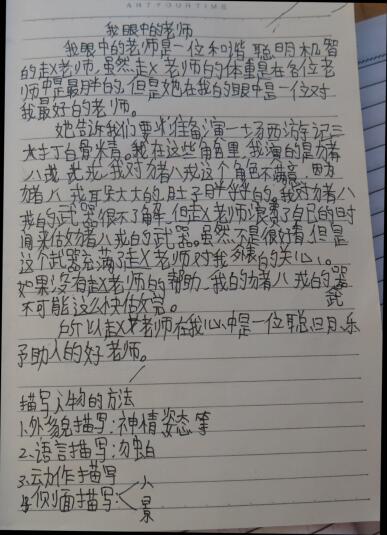 ARTFOURTIME
我眼中的老师
我眼中的老师是一位和谐聪明机智
的赵X老师,虽然赵X老师的体重是在各位老
师中是最胖的,但是她在我的眼中是一位对
我最好的老师。
她告诉我们要准备演一场西游记三
大于了白骨精。我在这些角色里,我演的是猪
八戒,我对猪八戒这个角色不满意,因为
猪八戒耳朵大大的,肚子胖胖的。我对猪八
戒的武器很不了解,但赵X老师浪费了自己的时
间来做猪八戒的武器。虽然不是很好看,但是
这个武器充满了赵X老师对我的关心。
如果没有赵X老师的帮助,我的猪八戒的武器
不可能这么快做完。
所以赵X老师在我心中是一位聪明、乐
于助人的好老师。
描写人物的方法
1.外貌描写:神情姿态等
2.语言描写:独白
3.动作描写
4.侧面描写:人
景